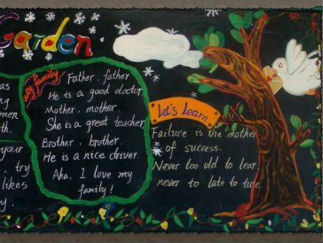 Garden
as
ng
men
th.
your
try
likes
y.
My family
Father, father
He is a good doctor.
Mother, mother
She is a great teacher.
Brother, brother.
He is a nice driver.
Aha, I love my
family!
Let's Learn
Failure is the mother
of success.
Never too old to lear
never to late to